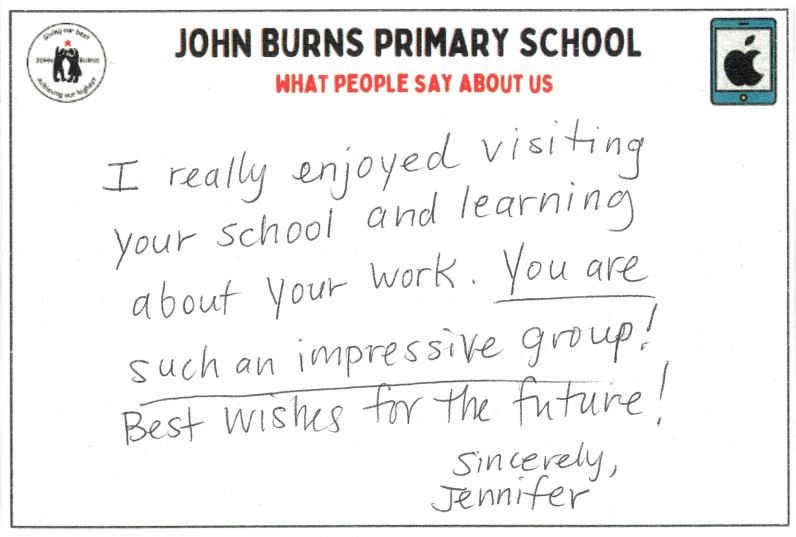 Giving our best
JOHN BURNS
Achieving our highest
JOHN BURNS PRIMARY SCHOOL
WHAT PEOPLE SAY ABOUT US
I really enjoyed visiting
your school and learning
about your work. You are
such an impressive group!
Best wishes for the future!
Sincerely,
Jennifer